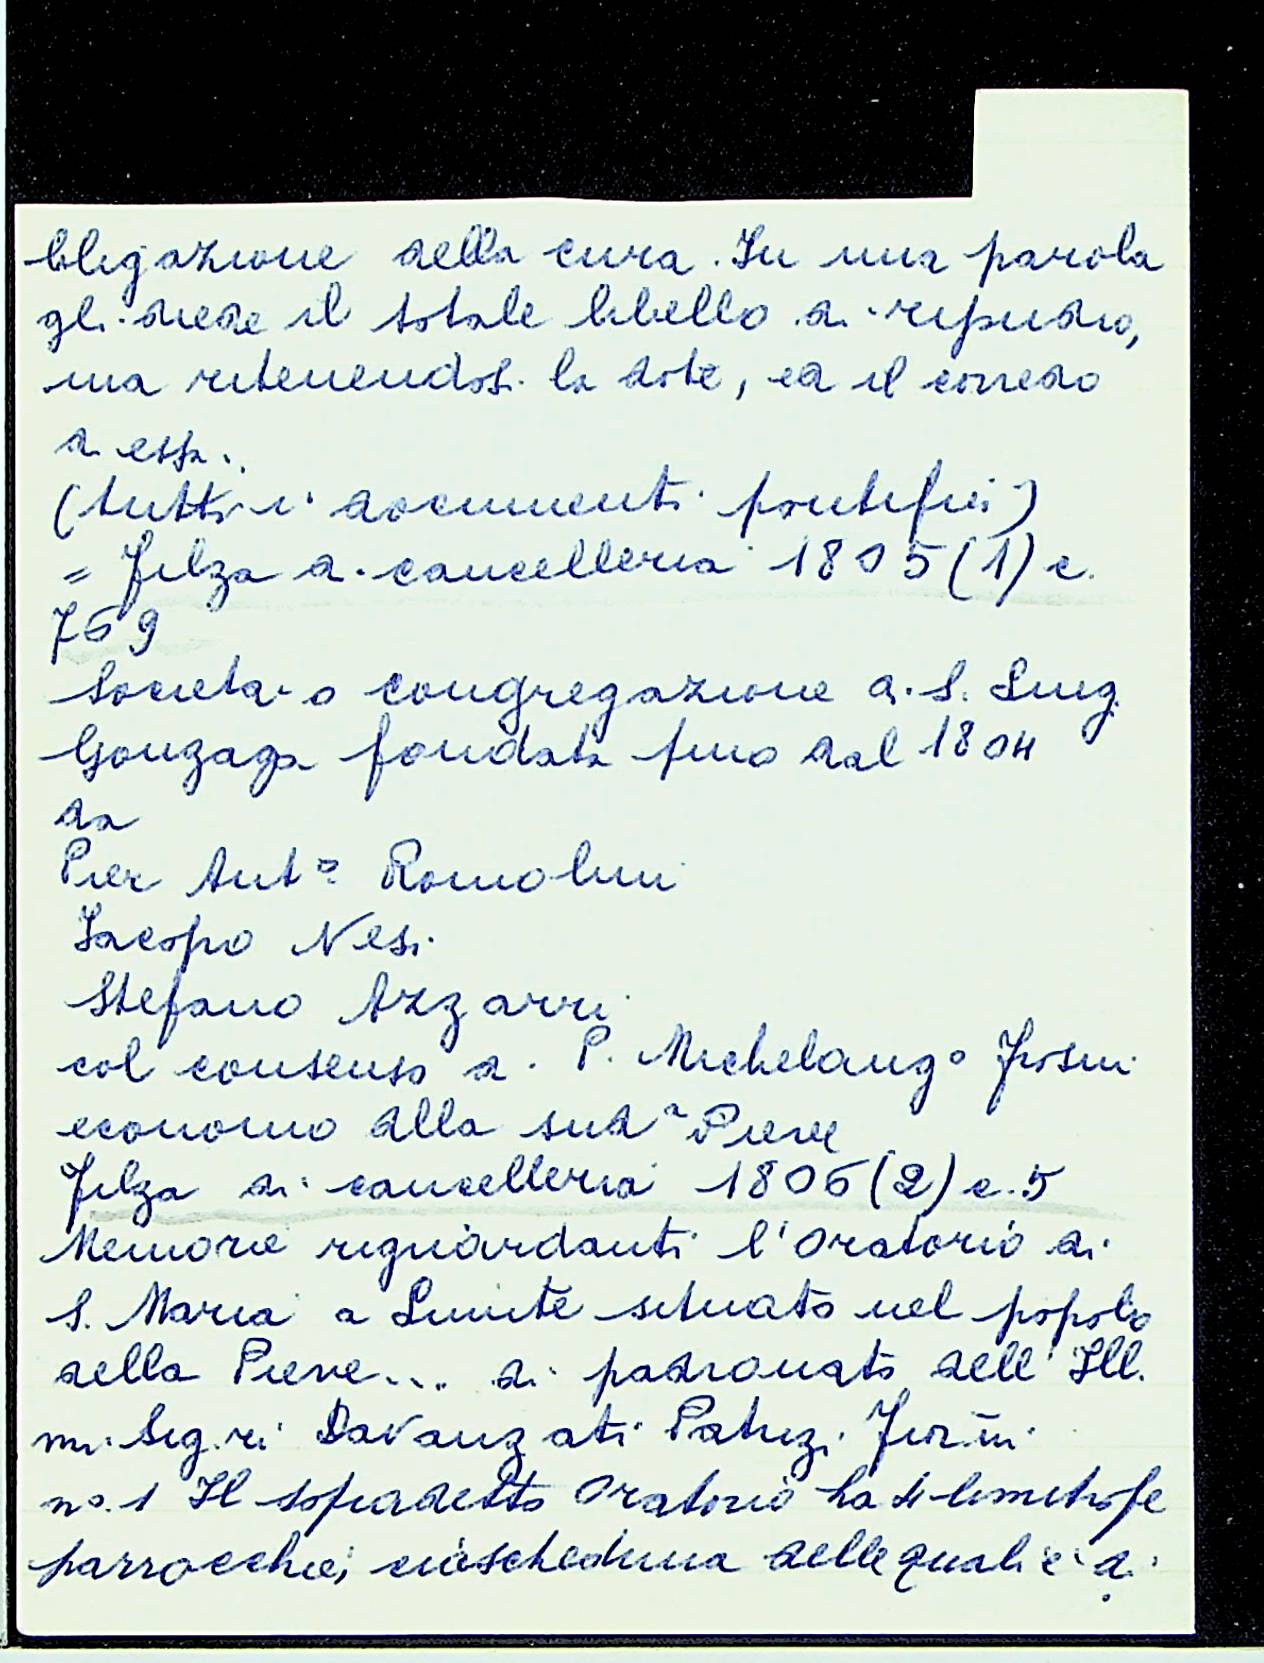 bligazione della cura. In una parola
gli diede il totale libello di repudio,
ma ritenendosi la dote, ed il corredo
di essa.
(tutti i documenti
= Filza di cancelleria 1805 (1) c.
769
Societa o congregazione di S. Luig.
Gonzaga fondata fino dal 1804
da
Pier Antº Romolini
Iacopo Nesi
Stefano Azzarri
col consenso di P. Michelangº Frosini
economo alla sudª Pieve
Filza di cancelleria 1806 (2) c. 5
Memorie riguardanti l'Oratorio di
S. Maria a Limite situato nel popolo
della Pieve... di padronato dell' Ill.
mi Sig.ri Davanzati Patrizi Fior.ni
nº. 1 Il sopradetto Oratorio ha 4 limitrofe
parrocchie, ciascheduna delle quali è di